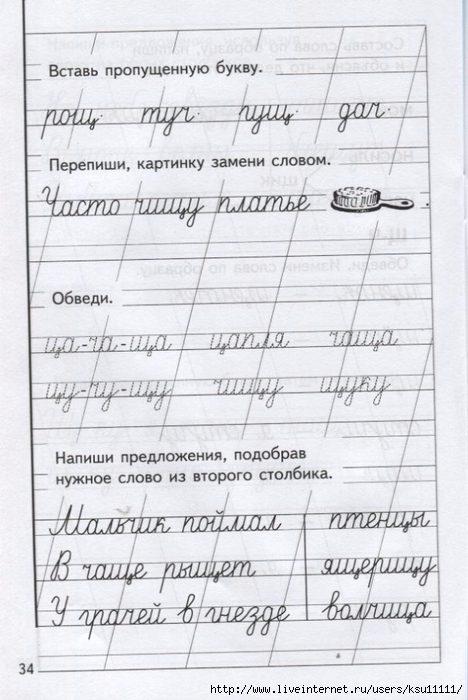 Вставь пропущенную букву.
рощ· туч· гущ· дач·
Перепиши, картинку замени словом.
Часто чищу платье
Обведи.
ца-ча-ща цапля чаща
цу-чу-щу чищу щуку
Напиши предложения, подобрав
нужное слово из второго столбика.
Мальчик поймал птенцы
В чаще рыщет ящерицу
У грачей в гнезде волчица
34
http://www.liveinternet.ru/users/ksu11111/